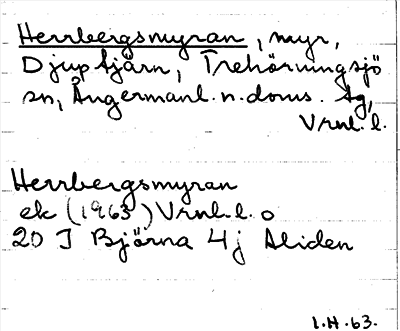 Herrbergsmyran, myr,
Djuptjärn, Trehörningsjö
sn, Ångermanl. n. doms. Ag,
Vrnl. l.
Herrbergsmyran
ek (1963) Vrnl. l. o
20 I Björna 4 j Aliden
1.H.63.